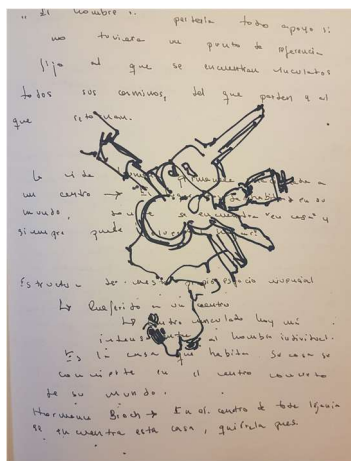 " El hombre perdería todo apoyo si
no tuviera un punto de referencia
fijo al que se encuentran vinculados
todos sus caminos, del que parten y al
que retornan.
la vida
un centro → habitad en su
mundo, donde se encuentra "en casa" y
siempre puede
Estructura de nuestro propio espacio vivencial
↳ Referido a un centro
↳ Centro vinculado hoy más
intensamente al hombre individual.
Es la casa que habita. Su casa se
convierte en el centro concreto
de su mundo.
Hermann Broch → En el centro de toda lejanía
se encuentra esta casa, quiérela pues